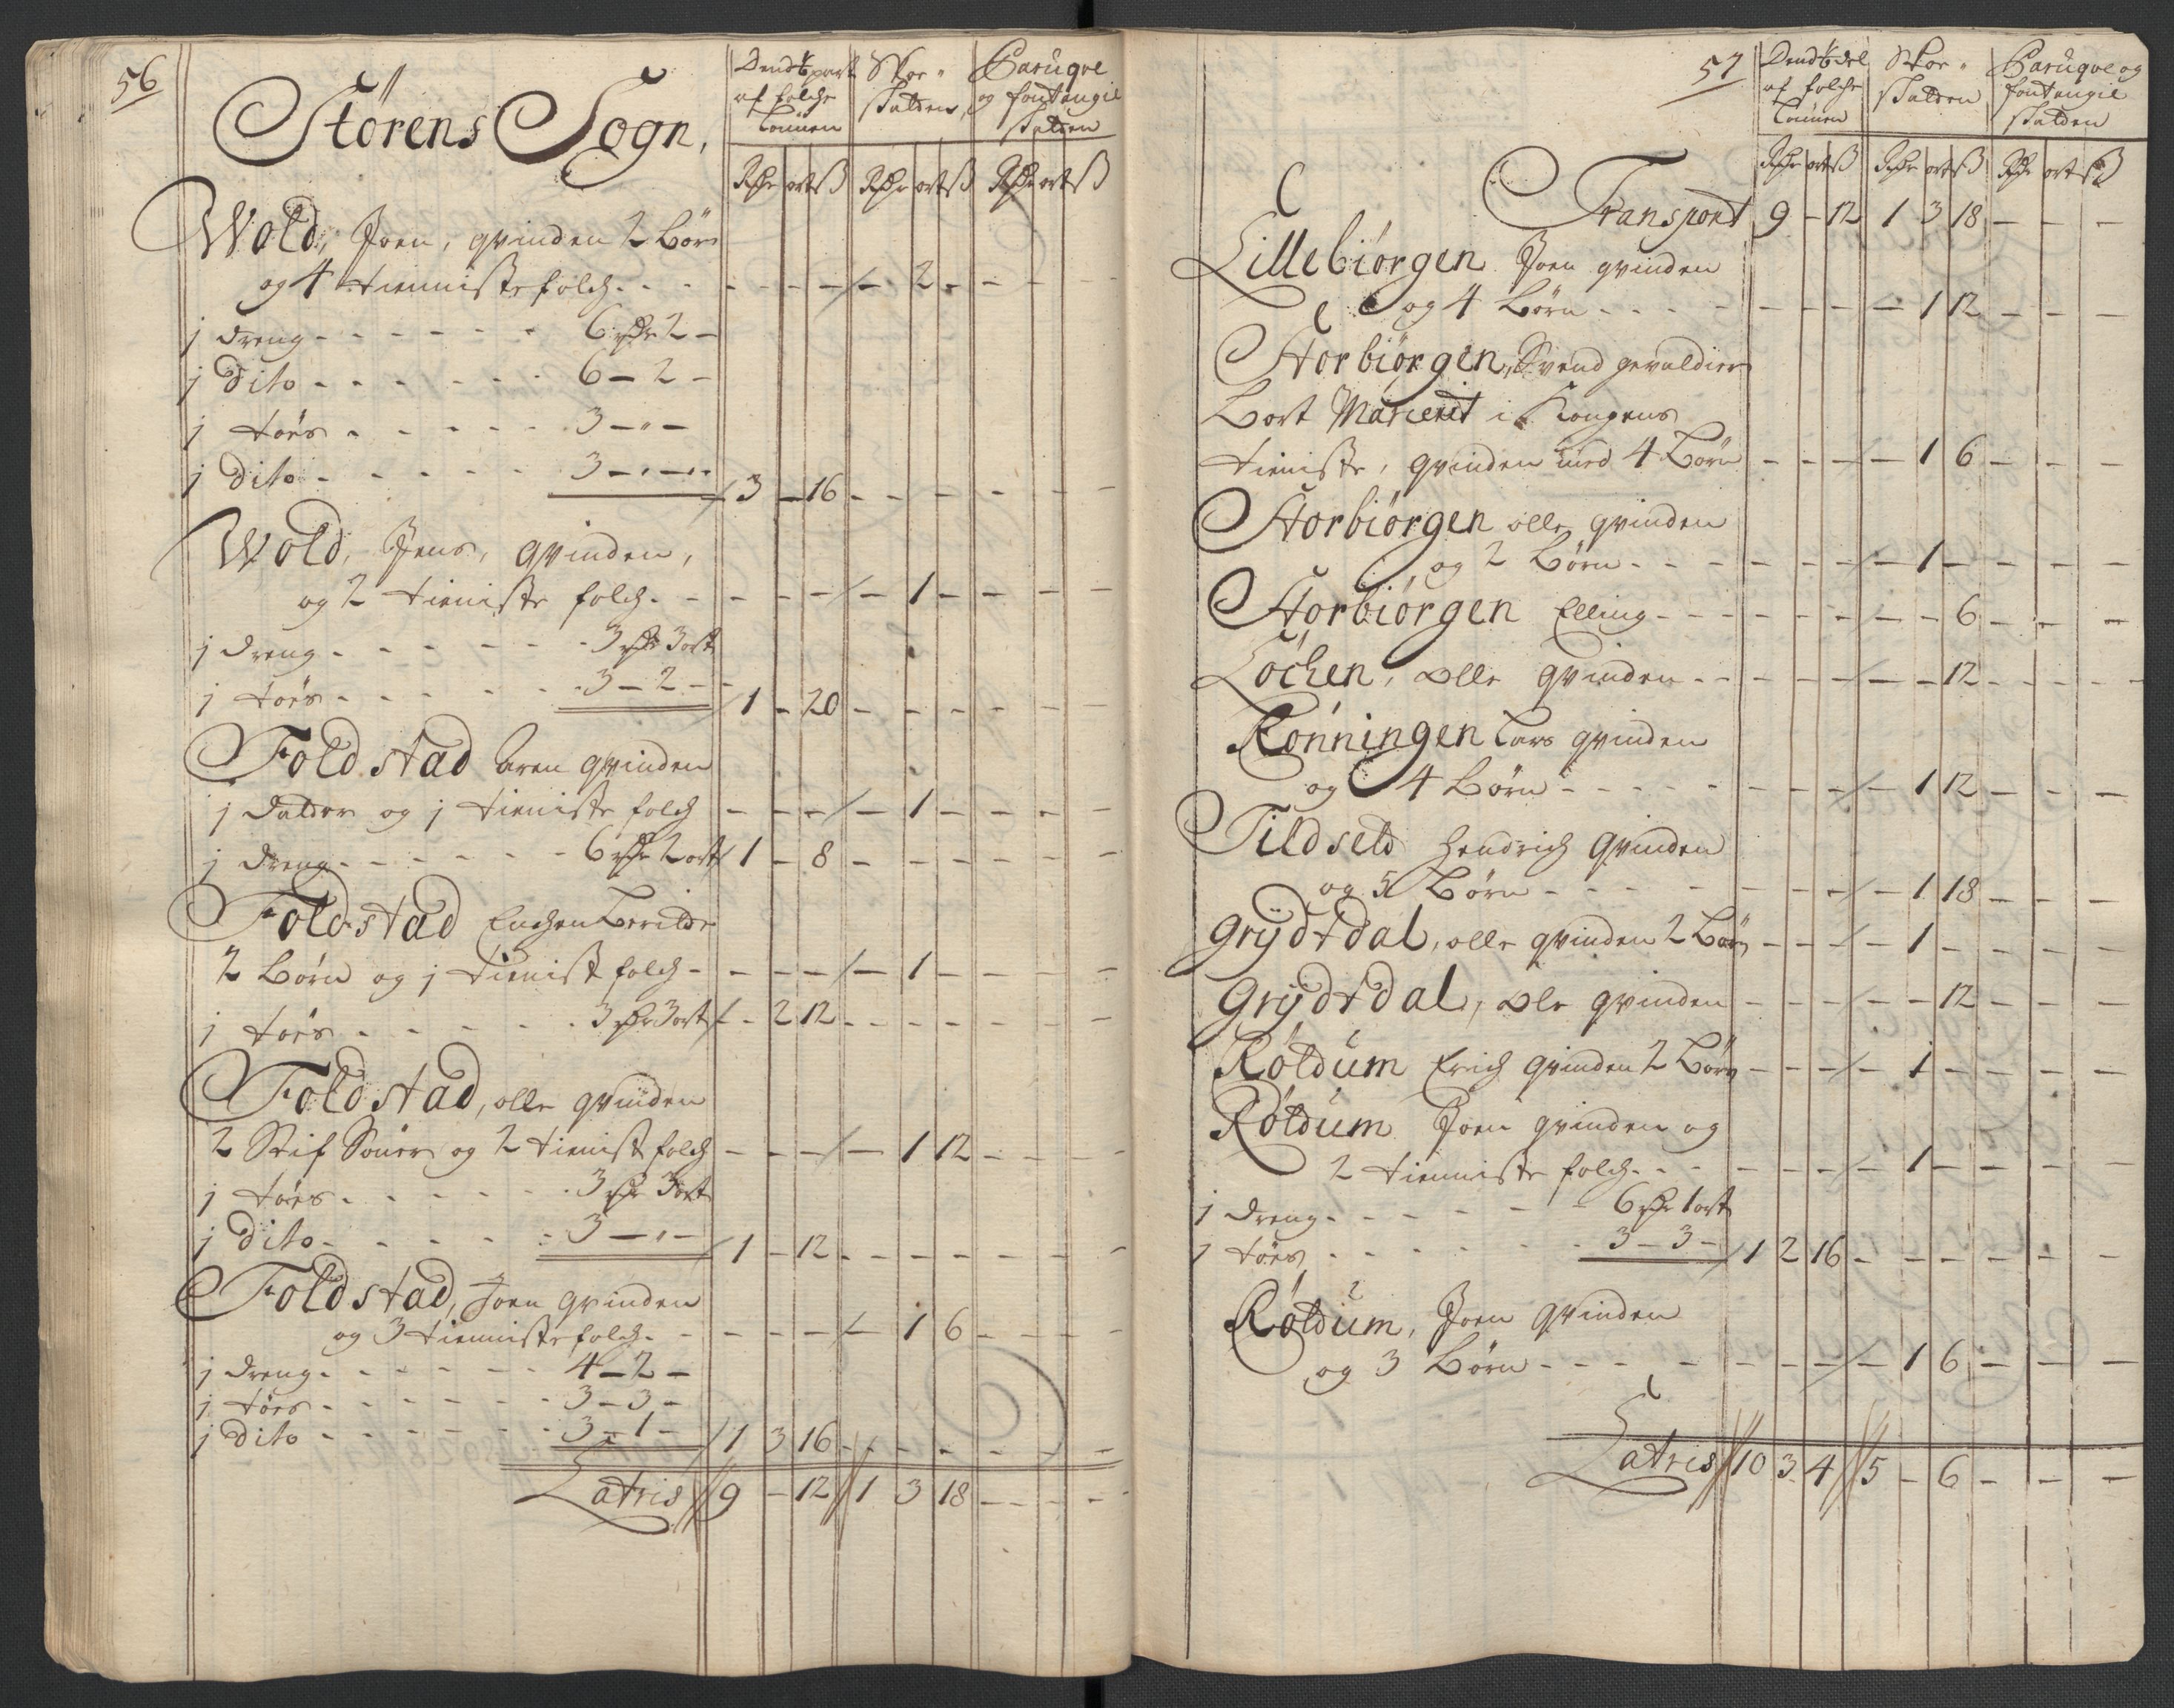 56
Störens Sogn,
Dend 6 part af folche Lönnen
Skoe skatten,
Paruqve og fontangie skatten
Rdr ort ß Rdr ort ß Rdr ort ß
Wold, Joen, qvinden 2 börn
og 4 tieniste folch - - - - - - - 2 - - - -
j dreng - - - - - 6 rdr 2 -
j dito - - - - - 6 - 2 -
j töes - - - - - 3 - " -
j dito - - - - - 3 - " - 3 - 16 - - - - - -
Wold, Jens, qvinden,
og 2 tieniste folch - - - - - 1 - - - -
j dreng - - - - - 3 rdr 3 ort
j töes - - - - - 3 - 2 - 1 - 20 - - - - - -
Foldstad Aren qvinden
j datter og j tieniste folch - - - - 1 - - - -
j dreng - - - - - 6 rdr 2 ort 1 - 8 - - - - - -
Foldstad Enchen Berilde
2 Börn og j tienist folch - - - - - 1 - - - -
j töes - - - - - 3 rdr 3 ort - 2 12 - - - - - -
Foldstad, olle qvinden
2 Stif Sönner og 2 tienist folch - - - - 1 12 - - -
j töes - - - - - 3 rdr 3 ort
j dito - - - - - 3 - " - 1 - 12 - - - - - -
Foldstad, Joen qvinden
og 3 tienniste folch - - - - - 1 6 - - -
j dreng - - - - - 4 - 2 -
j töes - - - - - 3 - 3 -
j dito - - - - - 3 - 1 - 1 3 16 - - - - - -
Latris 9 - 12 1 3 18 - - -
57
Dend 6 del af folche Lönnen
Skoe skatten
Paruqve og fontangie skatten
Rdr ort ß Rdr ort ß Rdr ort ß
Transport 9 - 12 1 3 18 - - -
Lillebiörgen Joen qvinden
og 4 Börn - - - - - - - - 1 12 - - -
Storbiörgen, Svend gevaldier
Bort Marcerit i Kongens
tieniste, qvinden med 4 Börn - - - - 1 6 - - -
Storbiörgen olle qvinden
og 2 Börn - - - - - - - 1 - - - -
Storbiörgen Elling - - - - - - - 6 - - -
Löchen, olle qvinden - - - - - - 12 - - -
Rönningen Lars qvinden
og 4 Börn - - - - - - - 1 12 - - -
Tildseld Hendrich qvinden
og 5 Börn - - - - - - - 1 18 - - -
Grÿdtdal, olle qvinden 2 Börn - - - - 1 - - - -
Grÿdtdal, ole qvinden - - - - - 12 - - -
Röldum Erich qvinden 2 Börn - - - - 1 - - - -
Röldum Joen qvinden og
2 tienniste folch - - - - - - 1 - - - -
j dreng - - - - - 6 rdr 1 ort
j töes - - - - - 3 - 3 - 1 2 16 - - - - - -
Röldum, Joen qvinden
og 3 Börn - - - - - - - 1 6 - - -
Latris 10 3 4 5 - 6 - - -